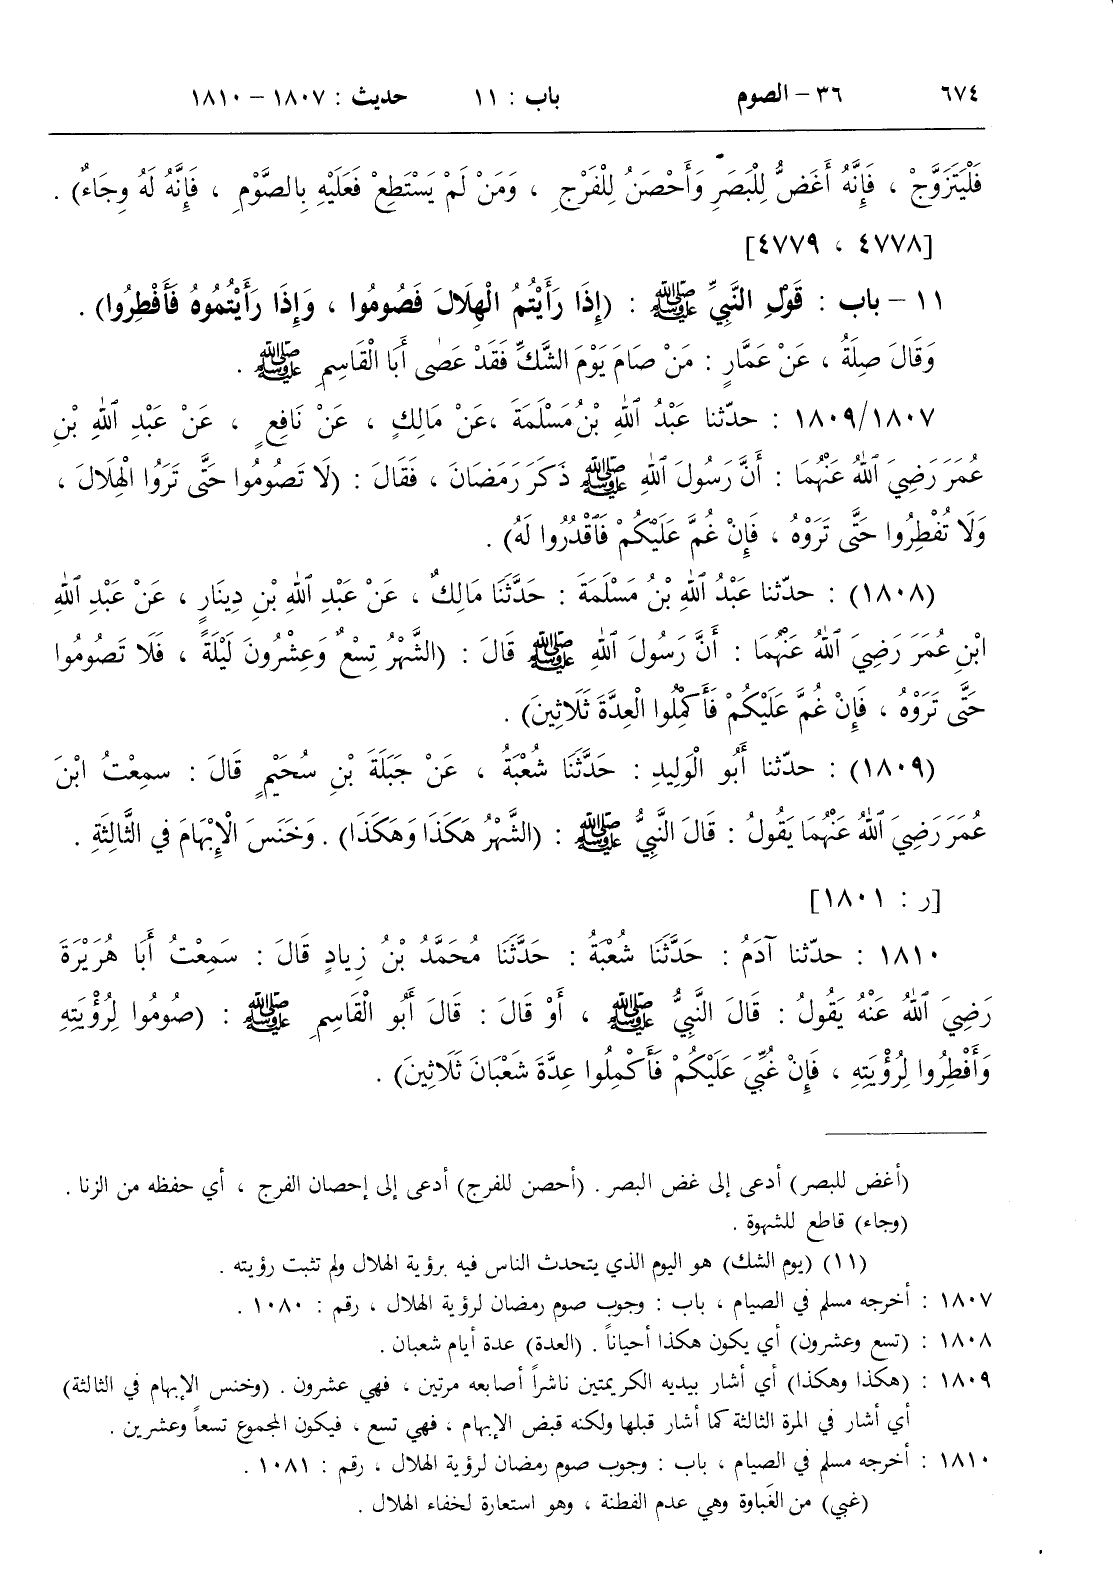 ٦٧٤ ٣٦ – الصوم باب : ١١ حديث : ١٨٠٧ – ١٨١٠
فَلْيَتَزَوَّجْ ، فَإِنَّهُ أَغَضُّ لِلْبَصَرِ وَأَحْصَنُ لِلْفَرْجِ ، وَمَنْ لَمْ يَسْتَطِعْ فَعَلَيْهِ بِالصَّوْمِ ، فَإِنَّهُ لَهُ وِجَاءٌ) .
[٤٧٧٨ ، ٤٧٧٩]
١١ – باب : قَوْلِ النَّبِيِّ ﷺ : (إِذَا رَأَيْتُمُ الْهِلَالَ فَصُومُوا ، وَإِذَا رَأَيْتُمُوهُ فَأَفْطِرُوا) .
وَقَالَ صِلَةُ ، عَنْ عَمَّارٍ : مَنْ صَامَ يَوْمَ الشَّكِّ فَقَدْ عَصٰى أَبَا الْقَاسِمِ ﷺ .
١٨٠٩/١٨٠٧ : حدّثنا عَبْدُ ٱللهِ بْنُ مَسْلَمَةَ ،عَنْ مَالِكٍ ، عَنْ نَافِعٍ ، عَنْ عَبْدِ ٱللهِ بْنِ
عُمَرَ رَضِيَ ٱللهُ عَنْهُمَا : أَنَّ رَسُولَ ٱللهِ ﷺ ذَكَرَ رَمَضَانَ ، فَقَالَ : (لَا تَصُومُوا حَتَّى تَرَوُا الْهِلَالَ ،
وَلَا تُفْطِرُوا حَتَّى تَرَوْهُ ، فَإِنْ غُمَّ عَلَيْكُمْ فَٱقْدُرُوا لَهُ) .
(١٨٠٨) : حدّثنا عَبْدُ ٱللهِ بْنُ مَسْلَمَةَ : حَدَّثَنَا مَالِكٌ ، عَنْ عَبْدِ ٱللهِ بْنِ دِينَارٍ ، عَنْ عَبْدِ ٱللهِ
ابْنِ عُمَرَ رَضِيَ ٱللهُ عَنْهُمَا : أَنَّ رَسُولَ ٱللهِ ﷺ قَالَ : (الشَّهْرُ تِسْعٌ وَعِشْرُونَ لَيْلَةً ، فَلَا تَصُومُوا
حَتَّى تَرَوْهُ ، فَإِنْ غُمَّ عَلَيْكُمْ فَأَكْمِلُوا الْعِدَّةَ ثَلَاثِينَ) .
(١٨٠٩) : حدّثنا أَبُو الْوَلِيدِ : حَدَّثَنَا شُعْبَةُ ، عَنْ جَبَلَةَ بْنِ سُحَيْمٍ قَالَ : سمِعْتُ ابْنَ
عُمَرَ رَضِيَ ٱللهُ عَنْهُمَا يَقُولُ : قَالَ النَّبِيُّ ﷺ : (الشَّهْرُ هَكَذَا وَهَكَذَا) . وَخَنَسَ الْإِبْهَامَ في الثَّالِثَةِ .
[ر : ١٨٠١]
١٨١٠ : حدّثنا آدَمُ : حَدَّثَنَا شُعْبَةُ : حَدَّثَنَا مُحَمَّدُ بْنُ زِيادٍ قَالَ : سَمِعْتُ أَبَا هُرَيْرَةَ
رَضِيَ ٱللهُ عَنْهُ يَقُولُ : قَالَ النَّبِيُّ ﷺ ، أَوْ قَالَ : قَالَ أَبُو الْقَاسِمِ ﷺ : (صُومُوا لِرُؤْيَتِهِ
وَأَفْطِرُوا لِرُؤْيَتِهِ ، فَإِنْ غُبِّيَ عَلَيْكُمْ فَأَكْمِلُوا عِدَّةَ شَعْبَانَ ثَلَاثِينَ) .
(أغض للبصر) أدعى إلى غض البصر . (أحصن للفرج) أدعى إلى إحصان الفرج ، أي حفظه من الزنا .
(وجاء) قاطع للشهوة .
(١١) (يوم الشك) هو اليوم الذي يتحدث الناس فيه برؤية الهلال ولم تثبت رؤيته .
١٨٠٧ : أخرجه مسلم في الصيام ، باب : وجوب صوم رمضان لرؤية الهلال ، رقم : ١٠٨٠ .
١٨٠٨ : (تسع وعشرون) أي يكون هكذا أحياناً . (العدة) عدة أيام شعبان .
١٨٠٩ : (هكذا وهكذا) أي أشار بيديه الكريمتين ناشراً أصابعه مرتين ، فهي عشرون . (وخنس الإبهام في الثالثة)
أي أشار في المرة الثالثة كما أشار قبلها ولكنه قبض الإبهام ، فهي تسع ، فيكون المجموع تسعاً وعشرين .
١٨١٠ : أخرجه مسلم في الصيام ، باب : وجوب صوم رمضان لرؤية الهلال ، رقم : ١٠٨١ .
(غبي) من الغَباوة وهي عدم الفطنة ، وهو استعارة لخفاء الهلال .